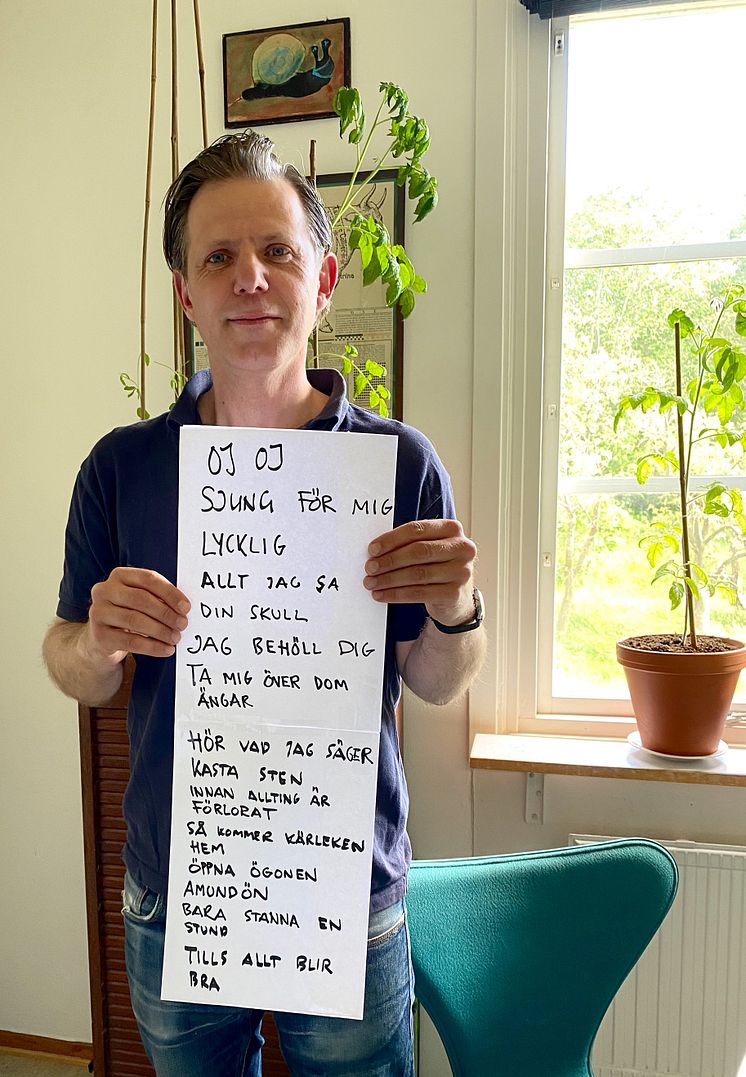 OJ OJ
SJUNG FÖR MIG
LYCKLIG
ALLT JAG SA
DIN SKULL
JAG BEHÖLL DIG
TA MIG ÖVER DOM
ÄNGAR
HÖR VAD JAG SÄGER
KASTA STEN
INNAN ALLTING ÄR
FÖRLORAT
SÅ KOMMER KÄRLEKEN
HEM
ÖPPNA ÖGONEN
AMUNDÖN
BARA STANNA EN
STUND
TILLS ALLT BLIR
BRA